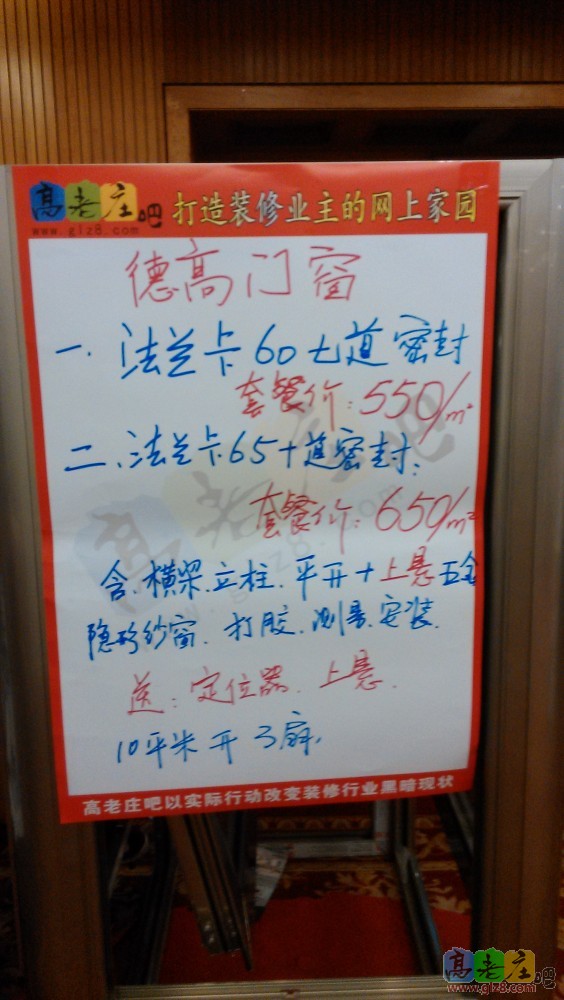 高老庄吧 打造装修业主的网上家园
www.glz8.com
德高门窗
一.法兰卡60七道密封
套餐价:550/m²
二、法兰卡65十道密封:
套餐价:650/m²
含.横梁.立柱.平开+上悬五金
隐形纱窗.打胶.测量.安装.
送:定位器.上悬.
10平米开3扇.
高老庄吧以实际行动改变装修行业黑暗现状
高老庄吧
www.glz8.com